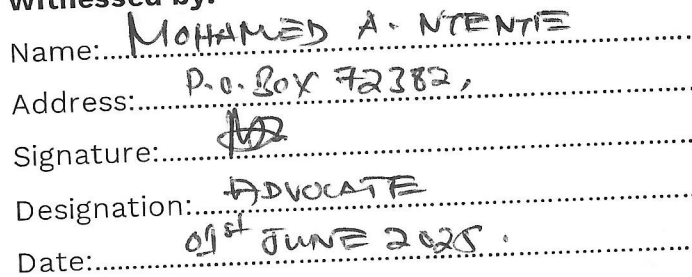 Witnessed by:
Name: MOHAMED A. NTENTIE
Address: P.O. BOX 72382,
Signature:
Designation: ADVOCATE
Date: 01st JUNE 2025.